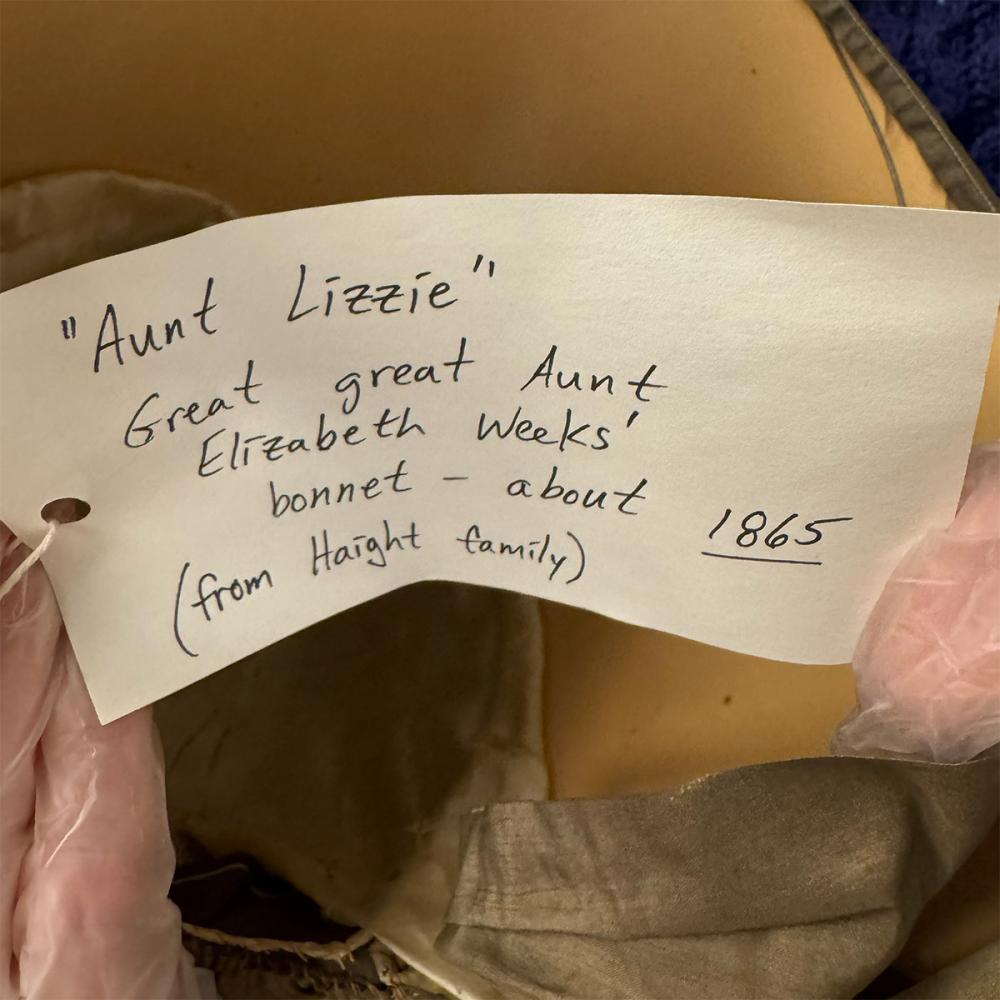 "Aunt Lizzie"
Great great Aunt
Elizabeth Weeks'
bonnet - about 1865
(from Haight family)